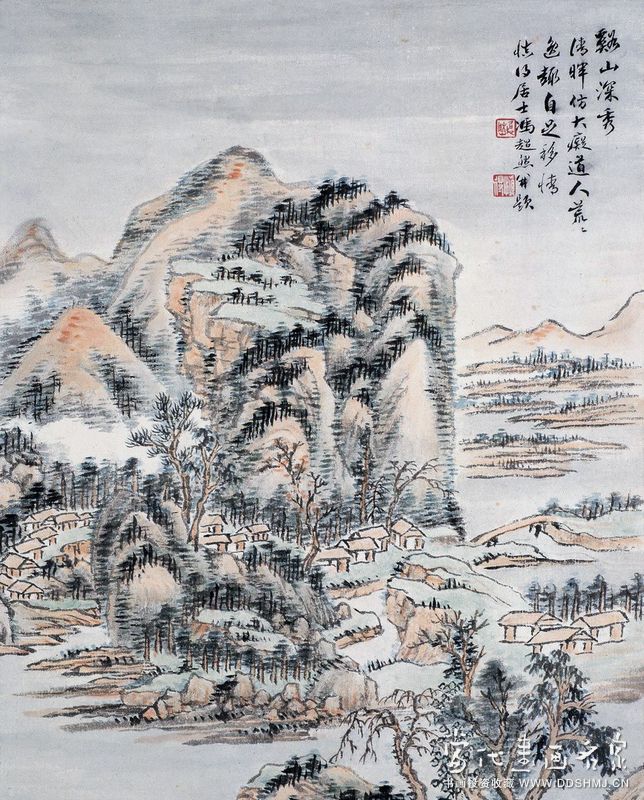 谿山深秀
清暉仿大癡道人荒荒
逸趣自足移情
慎得居士馮超然并題
当代書画名家
书画投资收藏 WWW.DDSHMJ.CN